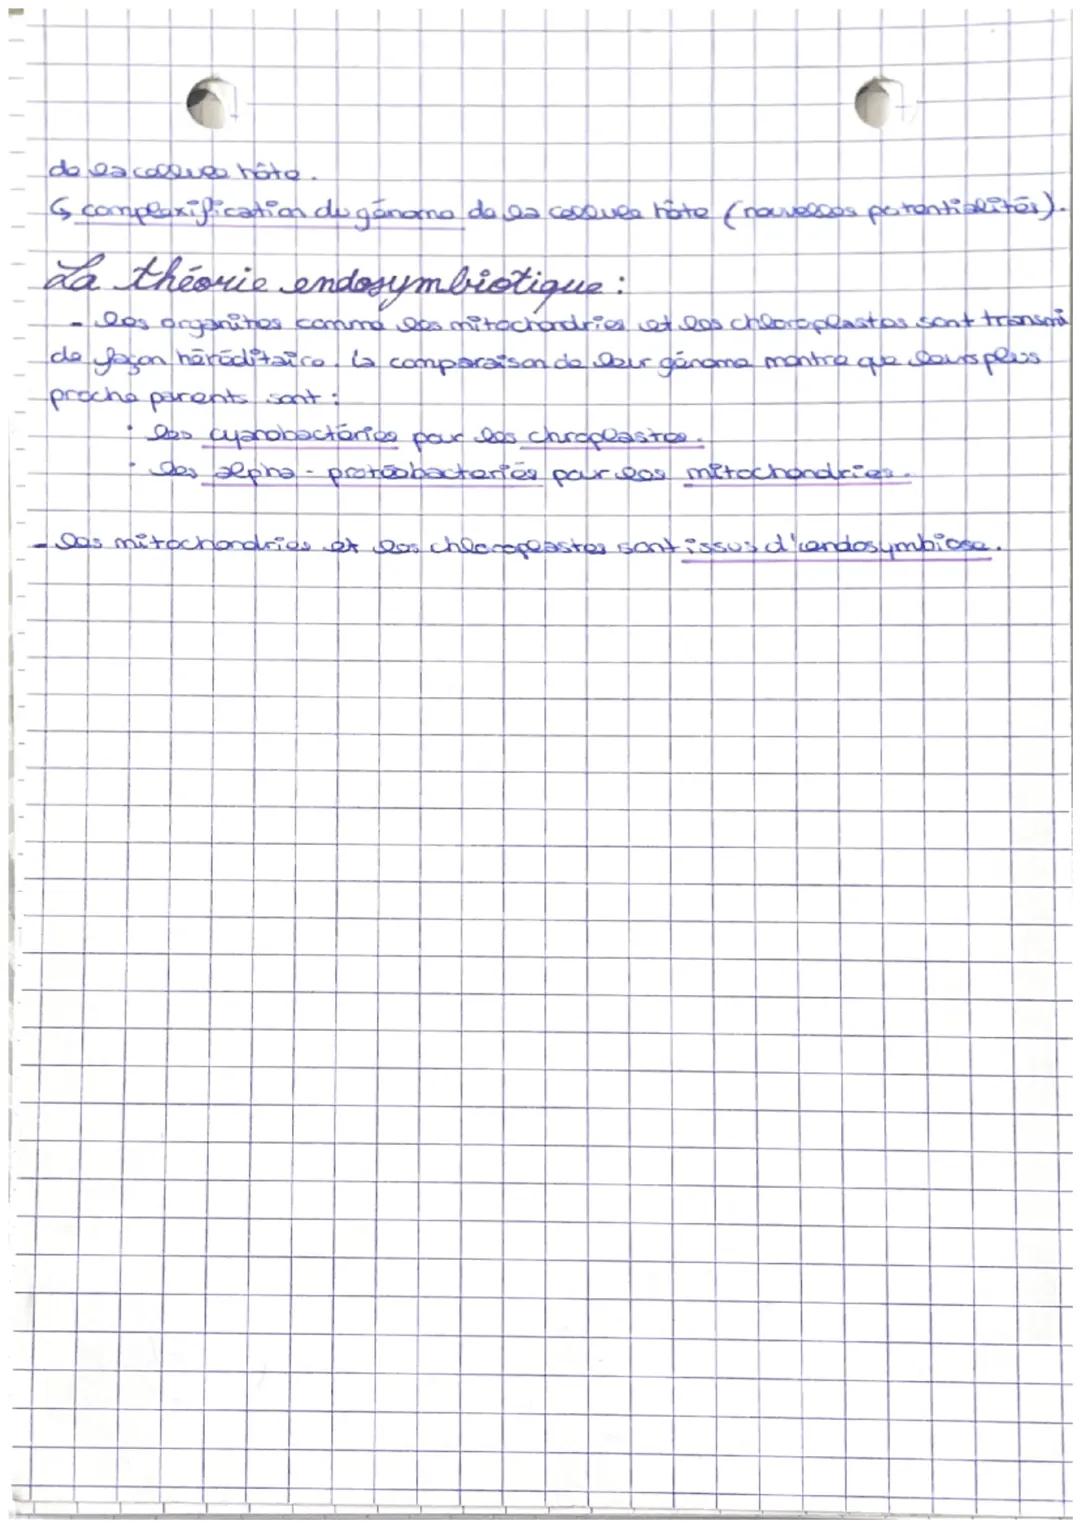 de la cellule hôte.
↳ complexification du génome de la cellule hôte (nouvelles potentialités).
La théorie endosymbiotique :
- les organites comme les mitochondries et les chloroplastes sont transmi
de façon héréditaire. la comparaison de leur génome montre que leurs plus
proche parents sont :
· les cyanobactéries pour les chroplastes.
· les alpha - protéobacteriés pour les mitochondries.
- les mitochondries et les chloroplastes sont issus d'endosymbiose.